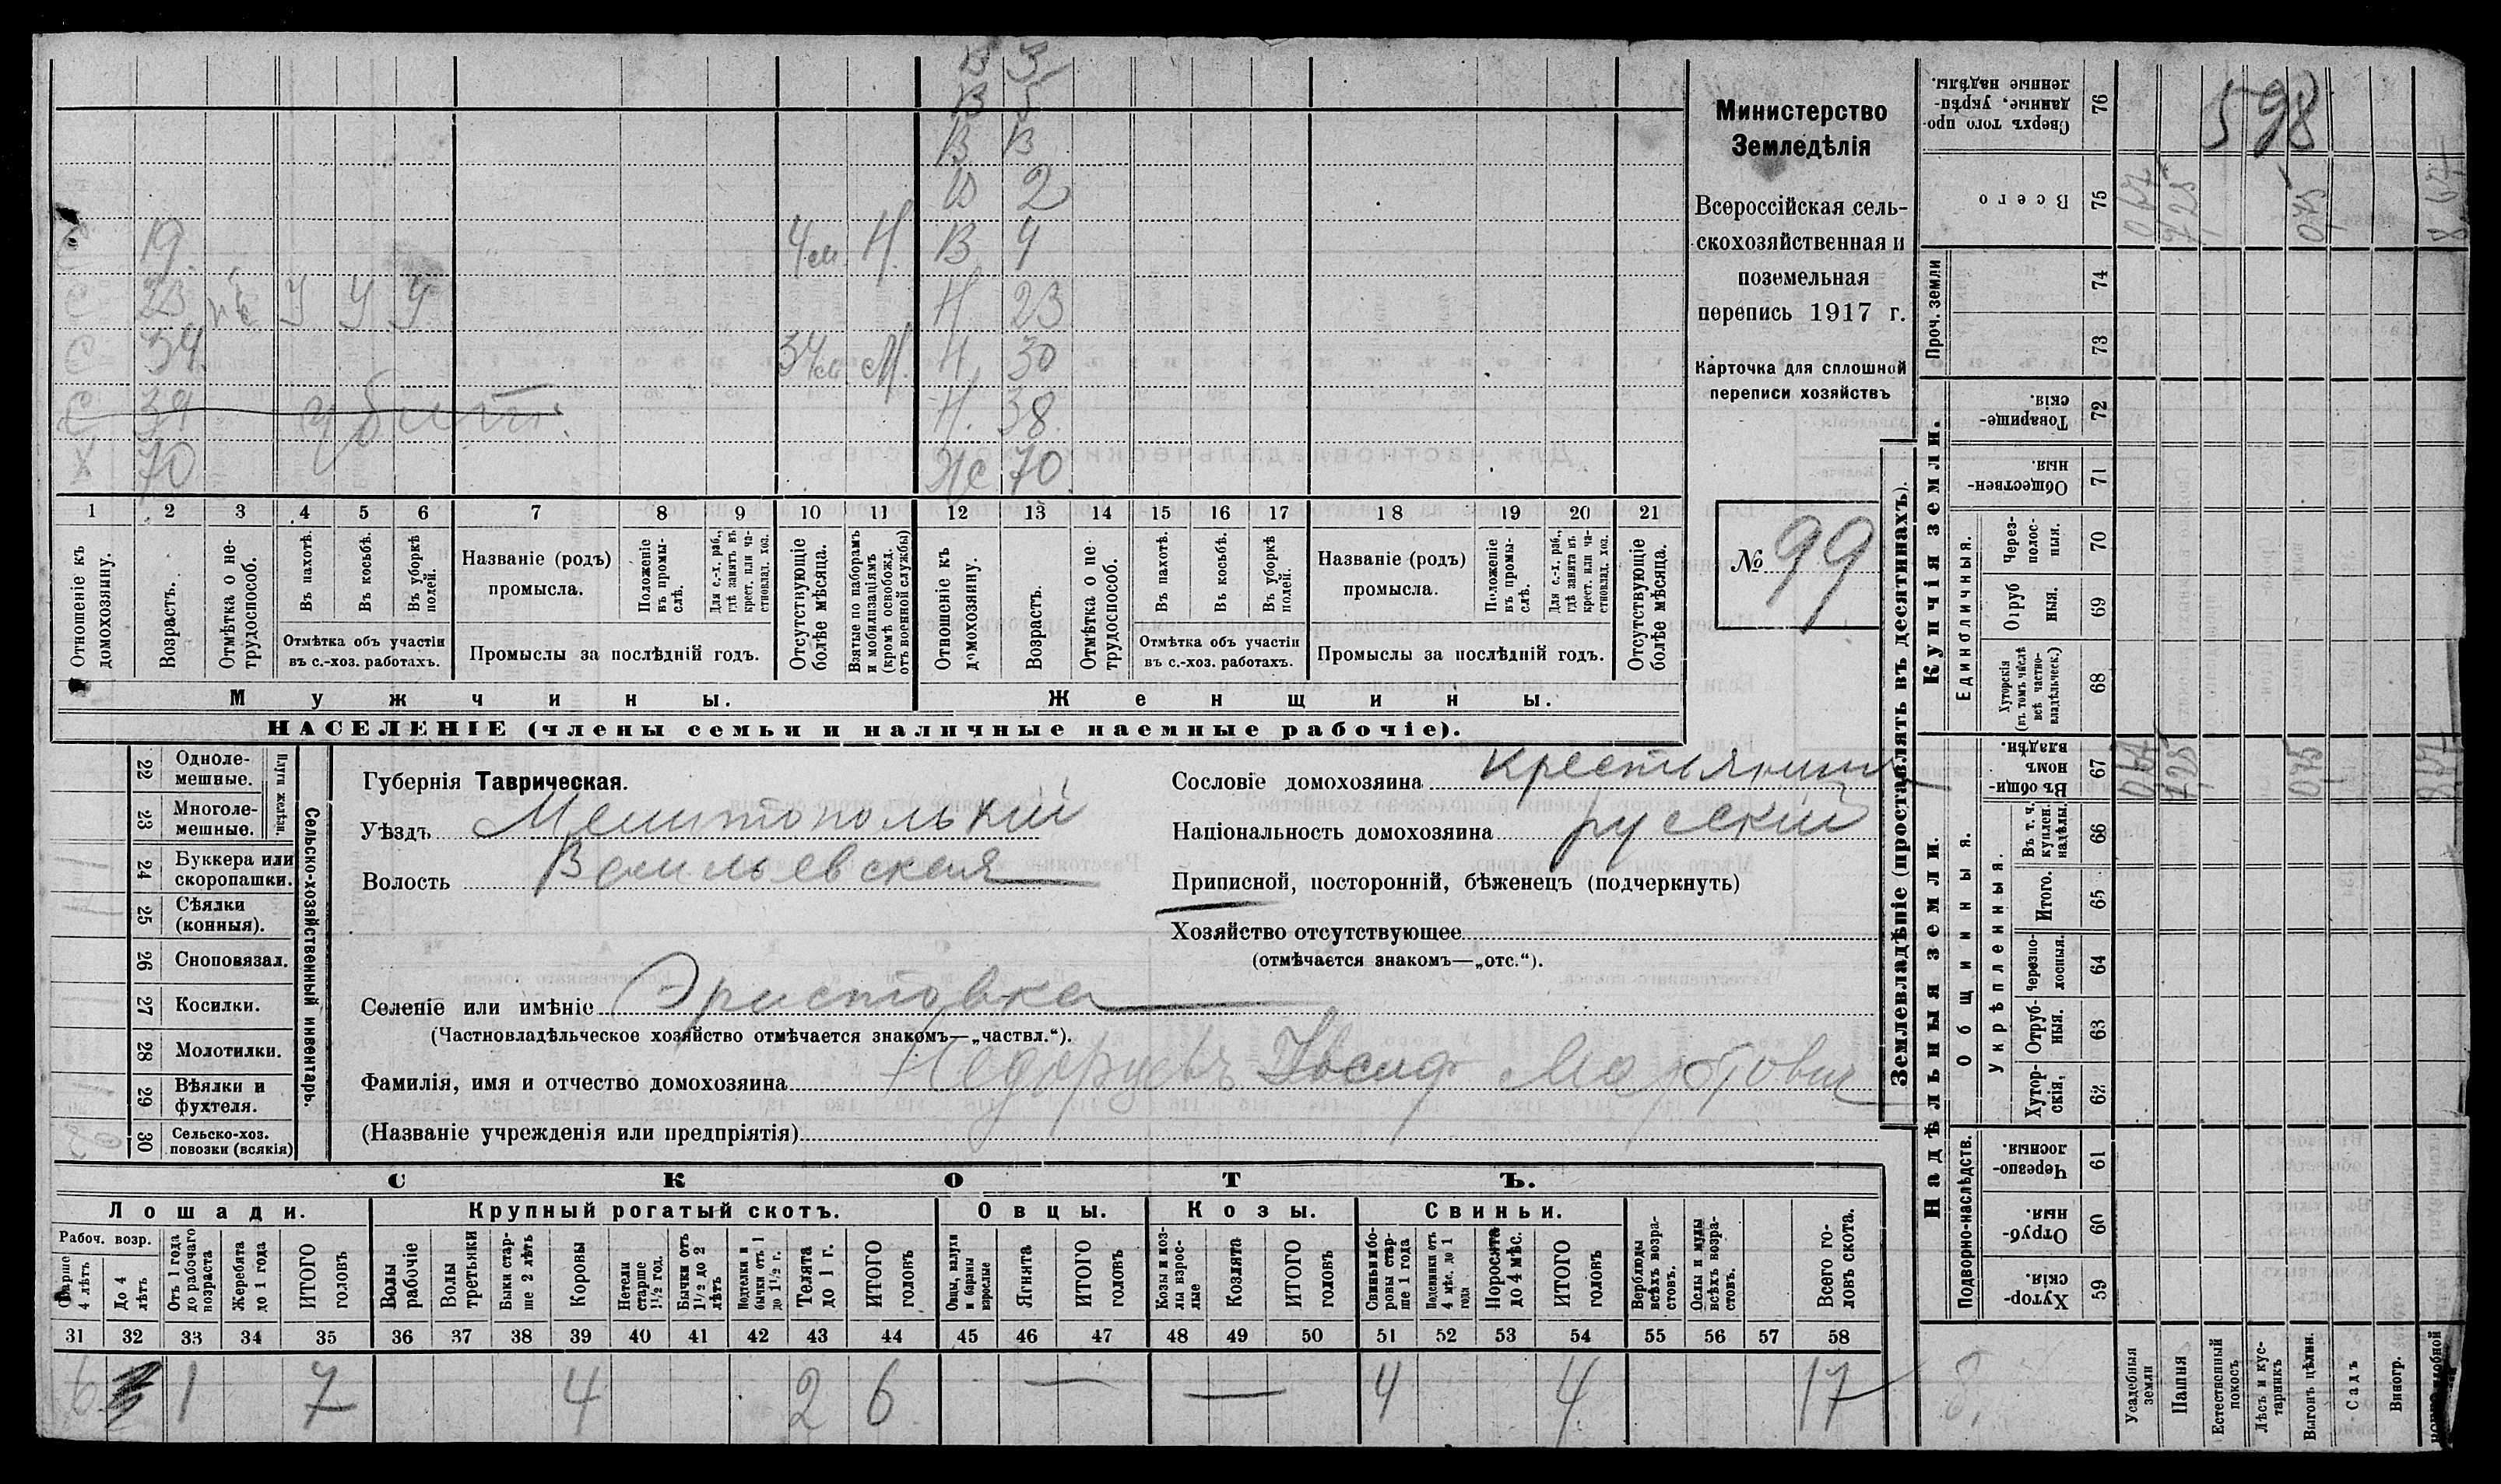 В 3
В 5
В В
В 2
С 19 4 м. Н. В 4
С 23 У У У Н 23
С 34 34 м. М. Н. 30
С 39 убит. Н. 38
Х 70 Ж 70
1 2 3 4 5 6 7 8 9 10 11 12 13 14 15 16 17 18 19 20 21
Отношеніе къ домохозяину.
Возрастъ.
Отмѣтка о не-трудоспособ.
Въ пахотѣ.
Въ косьбѣ.
Въ уборкѣ полей.
Отмѣтка объ участіи
въ с.-хоз. работахъ.
Названіе (родъ)
промысла.
Положеніе въ промы-слѣ.
Для с.-х. раб., гдѣ занятъ въ крест. или ча-стновлад. хоз.
Промыслы за послѣдній годъ.
Отсутствующіе болѣе мѣсяца.
Взятые по наборамъ и мобилизаціямъ (кромѣ освобожд. отъ военной службы)
Отношеніе къ домохозяину.
Возрастъ.
Отмѣтка о не трудоспособ.
Въ пахотѣ.
Въ косьбѣ.
Въ уборкѣ полей.
Отмѣтка объ участіи
въ с.-хоз. работахъ.
Названіе (родъ)
промысла.
Положеніе въ промы-слѣ.
Для с.-х. раб., гдѣ занята въ крест. или ча-стновлад. хоз.
Промыслы за послѣдній годъ.
Отсутствующіе болѣе мѣсяца.
Мужчины. Женщины.
НАСЕЛЕНІЕ (члены семьи и наличные наемные рабочіе).
Министерство
Земледѣлія
Всероссійская сель-
скохозяйственная и
поземельная
перепись 1917 г.
Карточка для сплошной
переписи хозяйствъ
№ 99
22 Однолемешные.
23 Многолемешные.
Плуги желѣзн.
24 Буккера или скоропашки.
25 Сѣялки (конныя).
26 Сноповязал.
27 Косилки.
28 Молотилки.
29 Вѣялки и фухтеля.
30 Сельско-хоз. повозки (всякія)
Сельско-хозяйственный инвентарь.
Губернія Таврическая.
Уѣздъ Мелитопольскій
Волость Васильевская
Селеніе или имѣніе Эристовка
(Частновладѣльческое хозяйство отмѣчается знакомъ—„частвл.“).
Фамилія, имя и отчество домохозяина Іосиф
(Названіе учрежденія или предпріятія)
Сословіе домохозяина крестьянинъ
Національность домохозяина русскій
Приписной, посторонній, бѣженецъ (подчеркнуть)
Хозяйство отсутствующее
(отмѣчается знакомъ—„отс.“).
СКОТЪ.
Лошади. Крупный рогатый скотъ. Овцы. Козы. Свиньи.
Рабоч. возр.
Старше 4 лѣтъ
До 4 лѣтъ
Отъ 1 года до рабочаго возраста
Жеребята до 1 года
ИТОГО головъ
Волы рабочіе
Волы третьяки
Быки стар-ше 2 лѣтъ
Коровы
Нетели старше 1½ год.
Бычки отъ 1½ до 2 лѣтъ
Подтелки и бычки отъ 1 до 1½ г.
Телята до 1 г.
ИТОГО головъ
Овцы, валухи и бараны взрослые
Ягнята
ИТОГО головъ
Козы и коз-лы взрос-лые
Козлята
ИТОГО головъ
Свиньи и бо-ровы стар-ше 1 года
Подсвинки отъ 4 мѣс. до 1 года
Поросята до 4 мѣс.
ИТОГО головъ
Верблюды всѣхъ возра-стовъ.
Ослы и мулы всѣхъ возра-стовъ.
Всего го-ловъ скота.
31 32 33 34 35 36 37 38 39 40 41 42 43 44 45 46 47 48 49 50 51 52 53 54 55 56 57 58
6 1 7 4 2 6 — — 4 4 17
Землевладѣніе (проставлять въ десятинахъ).
Надѣльныя земли. Купчія земли.
Подворно-наслѣдств.
Общинныя.
Укрѣпленныя.
Единоличныя.
Проч. земли
59 Хутор-скія.
60 Отруб-ныя.
61 Черезпо-лосныя.
62 Хутор-скія.
63 Отруб-ныя.
64 Черезпо-лосныя.
65 Итого.
66 Въ т. ч. куплен. надѣлы.
67 Въ общин-номъ владѣн.
68 Хуторскія (въ томъ числѣ всѣ частно-владѣльческ.)
69 Отруб ныя.
70 Через-полос-ныя.
71 Обществен-ныя.
72 Товарище-скія.
73
74
75 Всего
76 Сверхъ того про-данные, укрѣп-ленные надѣлы.
598
Усадебныя земли
Пашня
Естественный покосъ
Лѣсъ и кус-тарникъ
Выгонъ цѣлин.
Садъ
Виногр.